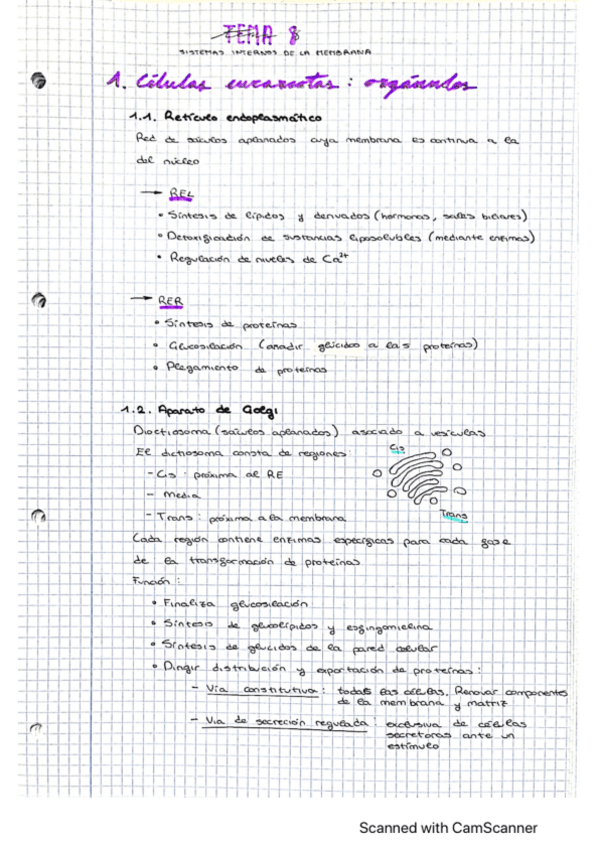 TEMA 8
SISTEMAS INTERNOS DE LA MEMBRANA
1. Células eucariotas : orgánulos
1.1. Retículo endoplasmático
Red de sáculos aplanados cuya membrana es continua a la
del núcleo
→ REL
• Síntesis de lípidos y derivados (hormonas, sales biliares)
• Detoxificación de sustancias liposolubles (mediante enzimas)
• Regulación de niveles de Ca²⁺
→ RER
• Síntesis de proteínas
• Glucosilación (añadir glúcidos a las proteínas)
• Plegamiento de proteínas
1.2. Aparato de Golgi
Dictiosoma (sáculos aplanados) asociado a vesículas
El dictiosoma consta de regiones:
- Cis : próxima al RE
- Media
- Trans : próxima a la membrana
Cis
Trans
Cada región contiene enzimas específicas para cada fase
de la transformación de proteínas
Función :
• Finaliza glucosilación
• Síntesis de glucolípidos y esfingomielina
• Síntesis de glúcidos de la pared celular
• Dirigir distribución y exportación de proteínas :
- Vía constitutiva : todas las células. Renovar componentes
de la membrana y matriz
- Vía de secreción regulada : exclusiva de células
secretoras ante un
estímulo
Scanned with CamScanner